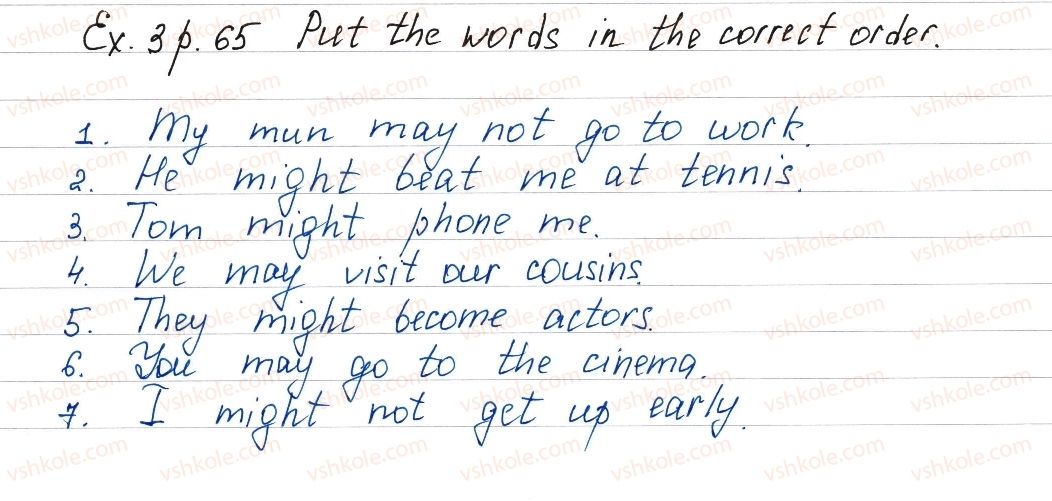 Ex. 3 p. 65 Put the words in the correct order.
1. My mun may not go to work.
2. He might beat me at tennis.
3. Tom might phone me.
4. We may visit our cousins.
5. They might become actors.
6. You may go to the cinema.
7. I might not get up early.